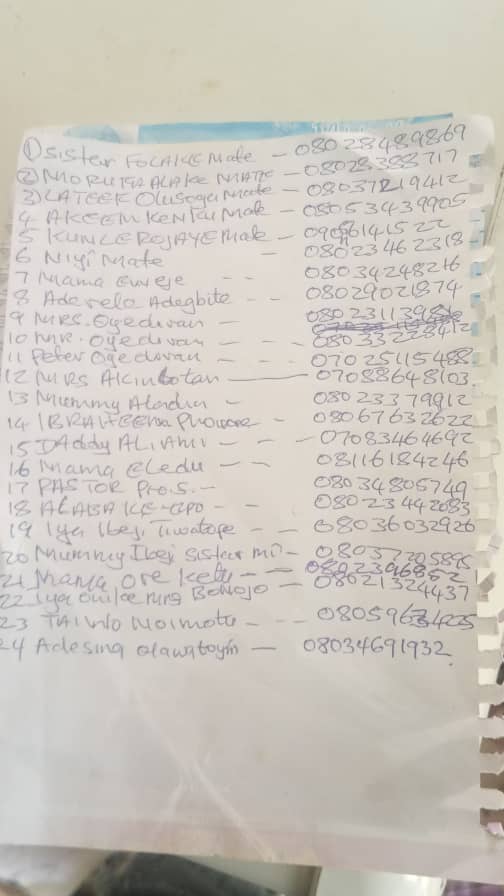 ① Sister FOLAKE Mate - 08028489869
② MORUFA ALAKE MATE - 08028388717
3) LATEEF Olusega Mate - 08037219412
4 AKEEM KENKU Mate - 08053439905
5 KUNLE ROJAYE Mate - 09056141522
6 Niyi Mate - 08023462318
7 Mama Eweje -- 08034248216
8 Aderelo Adegbite -- 08029021874
9 MRS. Oyeduran - 08023113984
10 MR. Oyeduran -- 08033228412
11 Peter Oyeduran --- 07025115488
12 MRS Akinbotan — 07088648103
13 Mummy Aladia - 08023379912
14 IBRAHEEM - 08067632622
15 DAddy ALIAMI - - - 07083464692
16 Mama Eledu -- 08116184246
17 PASTOR Pro.S. -- 08034805749
18 ALABA KE-EPO - 08023442683
19 Iya Ibeji Tiwatope -- 08036032926
20 Mummy Ibeji Sister Mi - 08037205895
21 Mama ore Kelu --
22 Iya MRS BONOJO - 08021324437
23 TAIWO Noimotu - - -
24 Adesina olawatoyin — 08034691932